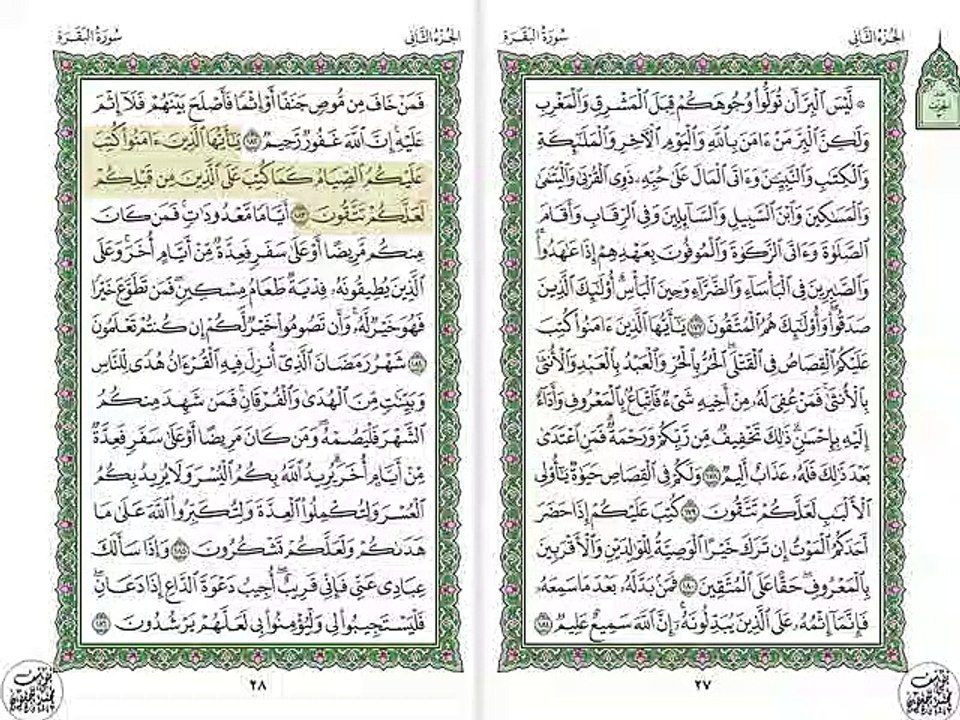 الجزء الثاني
سورة البقرة
۞ لَّيْسَ الْبِرَّ أَن تُوَلُّوا وُجُوهَكُمْ قِبَلَ الْمَشْرِقِ وَالْمَغْرِبِ
وَلَٰكِنَّ الْبِرَّ مَنْ ءَامَنَ بِاللَّهِ وَالْيَوْمِ الْآخِرِ وَالْمَلَٰئِكَةِ
وَالْكِتَٰبِ وَالنَّبِيِّۦنَ وَءَاتَى الْمَالَ عَلَىٰ حُبِّهِۦ ذَوِي الْقُرْبَىٰ وَالْيَتَٰمَىٰ
وَالْمَسَٰكِينَ وَابْنَ السَّبِيلِ وَالسَّآئِلِينَ وَفِي الرِّقَابِ وَأَقَامَ
الصَّلَوٰةَ وَءَاتَى الزَّكَوٰةَ وَالْمُوفُونَ بِعَهْدِهِمْ إِذَا عَٰهَدُوا
وَالصَّٰبِرِينَ فِي الْبَأْسَآءِ وَالضَّرَّآءِ وَحِينَ الْبَأْسِ أُولَٰئِكَ الَّذِينَ
صَدَقُوا وَأُولَٰئِكَ هُمُ الْمُتَّقُونَ ١٧٧ يَٰأَيُّهَا الَّذِينَ ءَامَنُوا كُتِبَ
عَلَيْكُمُ الْقِصَاصُ فِي الْقَتْلَى الْحُرُّ بِالْحُرِّ وَالْعَبْدُ بِالْعَبْدِ وَالْأُنثَىٰ
بِالْأُنثَىٰ فَمَنْ عُفِيَ لَهُۥ مِنْ أَخِيهِ شَيْءٌ فَاتِّبَاعٌ بِالْمَعْرُوفِ وَأَدَآءٌ
إِلَيْهِ بِإِحْسَٰنٍ ذَٰلِكَ تَخْفِيفٌ مِّن رَّبِّكُمْ وَرَحْمَةٌ فَمَنِ اعْتَدَىٰ
بَعْدَ ذَٰلِكَ فَلَهُۥ عَذَابٌ أَلِيمٌ ١٧٨ وَلَكُمْ فِي الْقِصَاصِ حَيَوٰةٌ يَٰأُولِي
الْأَلْبَٰبِ لَعَلَّكُمْ تَتَّقُونَ ١٧٩ كُتِبَ عَلَيْكُمْ إِذَا حَضَرَ
أَحَدَكُمُ الْمَوْتُ إِن تَرَكَ خَيْرًا الْوَصِيَّةُ لِلْوَٰلِدَيْنِ وَالْأَقْرَبِينَ
بِالْمَعْرُوفِ حَقًّا عَلَى الْمُتَّقِينَ ١٨٠ فَمَنۢ بَدَّلَهُۥ بَعْدَ مَا سَمِعَهُۥ
فَإِنَّمَآ إِثْمُهُۥ عَلَى الَّذِينَ يُبَدِّلُونَهُۥ إِنَّ اللَّهَ سَمِيعٌ عَلِيمٌ ١٨١
٢٧
الجزء الثاني
سورة البقرة
فَمَنْ خَافَ مِن مُّوصٍ جَنَفًا أَوْ إِثْمًا فَأَصْلَحَ بَيْنَهُمْ فَلَآ إِثْمَ
عَلَيْهِ إِنَّ اللَّهَ غَفُورٌ رَّحِيمٌ ١٨٢ يَٰأَيُّهَا الَّذِينَ ءَامَنُوا كُتِبَ
عَلَيْكُمُ الصِّيَامُ كَمَا كُتِبَ عَلَى الَّذِينَ مِن قَبْلِكُمْ
لَعَلَّكُمْ تَتَّقُونَ ١٨٣ أَيَّامًا مَّعْدُودَٰتٍ فَمَن كَانَ
مِنكُم مَّرِيضًا أَوْ عَلَىٰ سَفَرٍ فَعِدَّةٌ مِّنْ أَيَّامٍ أُخَرَ وَعَلَى
الَّذِينَ يُطِيقُونَهُۥ فِدْيَةٌ طَعَامُ مِسْكِينٍ فَمَن تَطَوَّعَ خَيْرًا
فَهُوَ خَيْرٌ لَّهُۥ وَأَن تَصُومُوا خَيْرٌ لَّكُمْ إِن كُنتُمْ تَعْلَمُونَ
١٨٤ شَهْرُ رَمَضَانَ الَّذِي أُنزِلَ فِيهِ الْقُرْءَانُ هُدًى لِّلنَّاسِ
وَبَيِّنَٰتٍ مِّنَ الْهُدَىٰ وَالْفُرْقَانِ فَمَن شَهِدَ مِنكُمُ
الشَّهْرَ فَلْيَصُمْهُ وَمَن كَانَ مَرِيضًا أَوْ عَلَىٰ سَفَرٍ فَعِدَّةٌ
مِّنْ أَيَّامٍ أُخَرَ يُرِيدُ اللَّهُ بِكُمُ الْيُسْرَ وَلَا يُرِيدُ بِكُمُ
الْعُسْرَ وَلِتُكْمِلُوا الْعِدَّةَ وَلِتُكَبِّرُوا اللَّهَ عَلَىٰ مَا
هَدَىٰكُمْ وَلَعَلَّكُمْ تَشْكُرُونَ ١٨٥ وَإِذَا سَأَلَكَ
عِبَادِي عَنِّي فَإِنِّي قَرِيبٌ أُجِيبُ دَعْوَةَ الدَّاعِ إِذَا دَعَانِ
فَلْيَسْتَجِيبُوا لِي وَلْيُؤْمِنُوا بِي لَعَلَّهُمْ يَرْشُدُونَ ١٨٦
٢٨